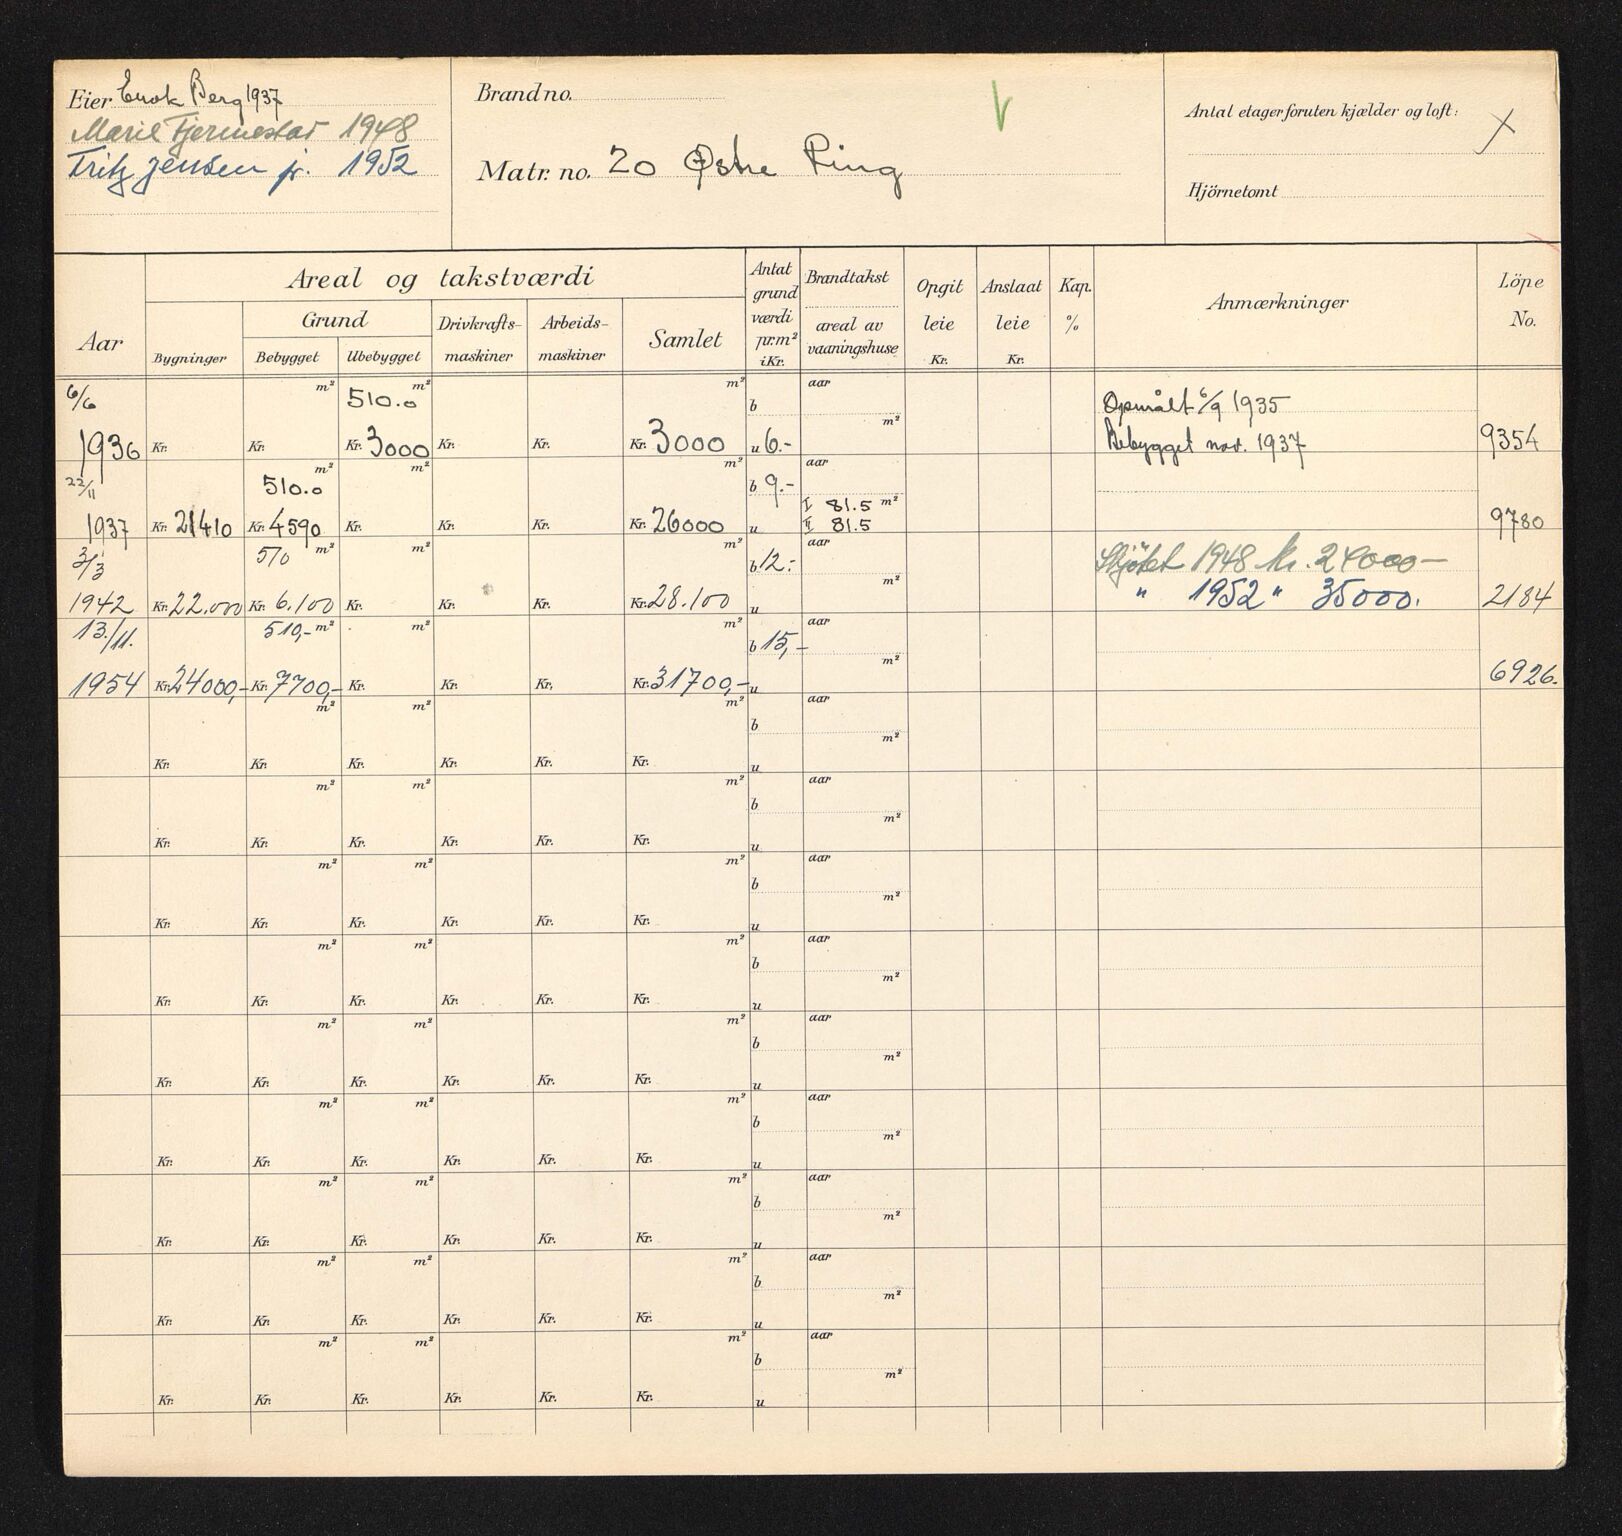 Eier Enok Berg 1937
Marie Tjermestad 1948
Fritz Jensen jr. 1952
Brand no.
Matr. no. 20 Østre Ring
Antal etager foruten kjælder og loft: X
Hjörnetomt
Aar
Areal og takstværdi
Bygninger
Grund
Bebygget Ubebygget
Drivkrafts-maskiner
Arbeids-maskiner
Samlet
Antat grund værdi pr. m² i Kr.
Brandtakst
areal av vaaningshuse
Opgit leie Kr.
Anslaat leie Kr.
Kap. %
Anmærkninger
Löpe No.
6/6 m² 510.0 m² m² b aar m² Opmålt 6/9 1935
1936 Kr. Kr. Kr. 3000 Kr. Kr. Kr. 3000 u 6.- Bebygget nov. 1937 9354
22/11 510.0 m² m² m² b 9.- aar I 81.5 m²
1937 Kr. 21410 Kr. 4590 Kr. Kr. Kr. Kr. 26000 u II 81.5 9780
3/3 510 m² m² m² b 12.- aar m² Skjötet 1948 kr. 24000-
1942 Kr. 22.000 Kr. 6.100 Kr. Kr. Kr. Kr. 28.100 u " 1952 " 35000. 2184
13./11. 510,- m² m² m² b 15,- aar m²
1954 Kr. 24000,- Kr. 7700,- Kr. Kr. Kr. Kr. 31700,- u 6926.
m² m² m² b aar m²
Kr. Kr. Kr. Kr. Kr. Kr. u
m² m² m² b aar m²
Kr. Kr. Kr. Kr. Kr. Kr. u
m² m² m² b aar m²
Kr. Kr. Kr. Kr. Kr. Kr. u
m² m² m² b aar m²
Kr. Kr. Kr. Kr. Kr. Kr. u
m² m² m² b aar m²
Kr. Kr. Kr. Kr. Kr. Kr. u
m² m² m² b aar m²
Kr. Kr. Kr. Kr. Kr. Kr. u
m² m² m² b aar m²
Kr. Kr. Kr. Kr. Kr. Kr. u
m² m² m² b aar m²
Kr. Kr. Kr. Kr. Kr. Kr. u
m² m² m² b aar m²
Kr. Kr. Kr. Kr. Kr. Kr. u